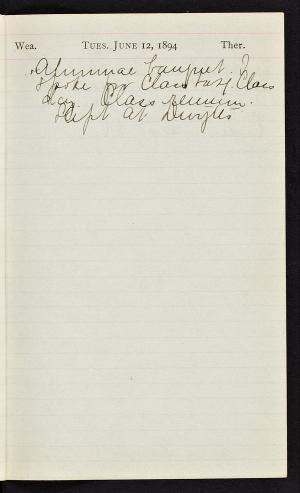 Wea. TUES. JUNE 12, 1894 Ther.
Alumnae banquet. I
spoke for Class of 84. Class
Day. Class reunion.
Slept at Dwytes